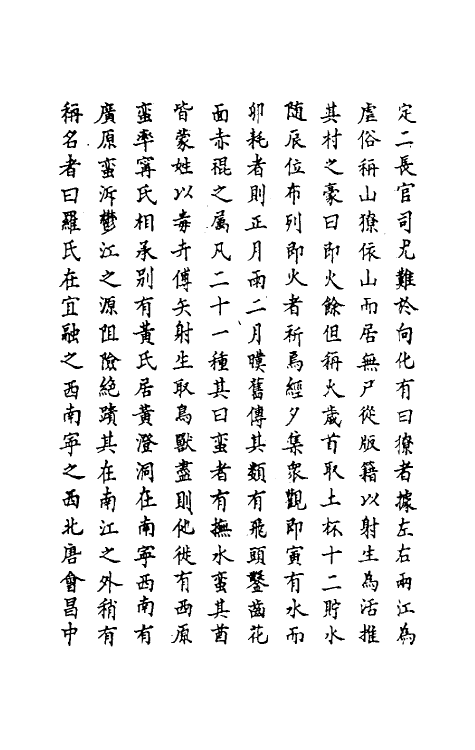 定二長官司尤難於向化有曰獠者據左右兩江為
虐俗稱山獠依山而居無尸從版籍以射生為活推
其村之豪曰即火餘但稱火歲首取土杯十二貯水
随辰位布列即火者祈焉經夕集衆觀即寅有水而
卯耗者則正月雨二月暵舊傳其類有飛頭鑿齒花
面赤裩之属凡二十一種其曰蛮者有撫水蛮其酋
皆蒙姓以毒卉傅矢射生取鳥獸盡則他徙有西原
蛮率甯氏相承別有黃氏居黃澄洞在南寧西南有
廣原蛮泝鬱江之源阻險絶蹟其在南江之外稍有
稱名者曰羅氏在宜融之西南寧之西北唐會昌中